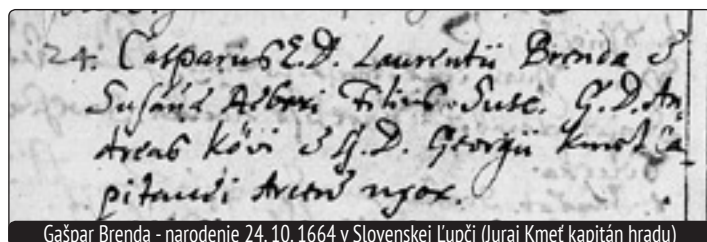 24. Casparus E. D. Laurentii Brenda &
Susanē Filius. Susc. G. D. An
dreas Kövi & G. D. Georgii Kmet Ca
pitanei Arcens uxor.
Gašpar Brenda - narodenie 24. 10. 1664 v Slovenskej Ľupči (Juraj Kmeť kapitán hradu)